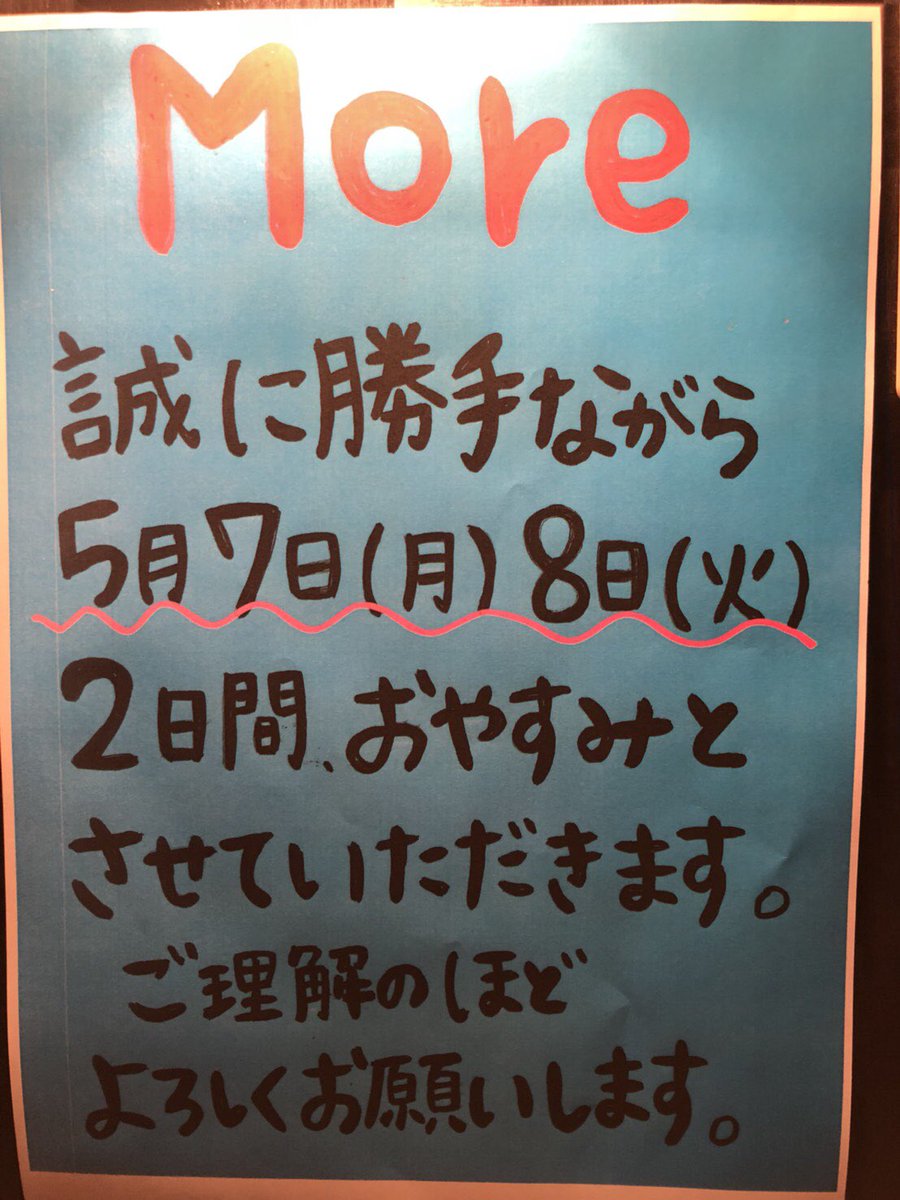 More
誠に勝手ながら
5月7日(月)8日(火)
2日間、おやすみと
させていただきます。
ご理解のほど
よろしくお願いします。